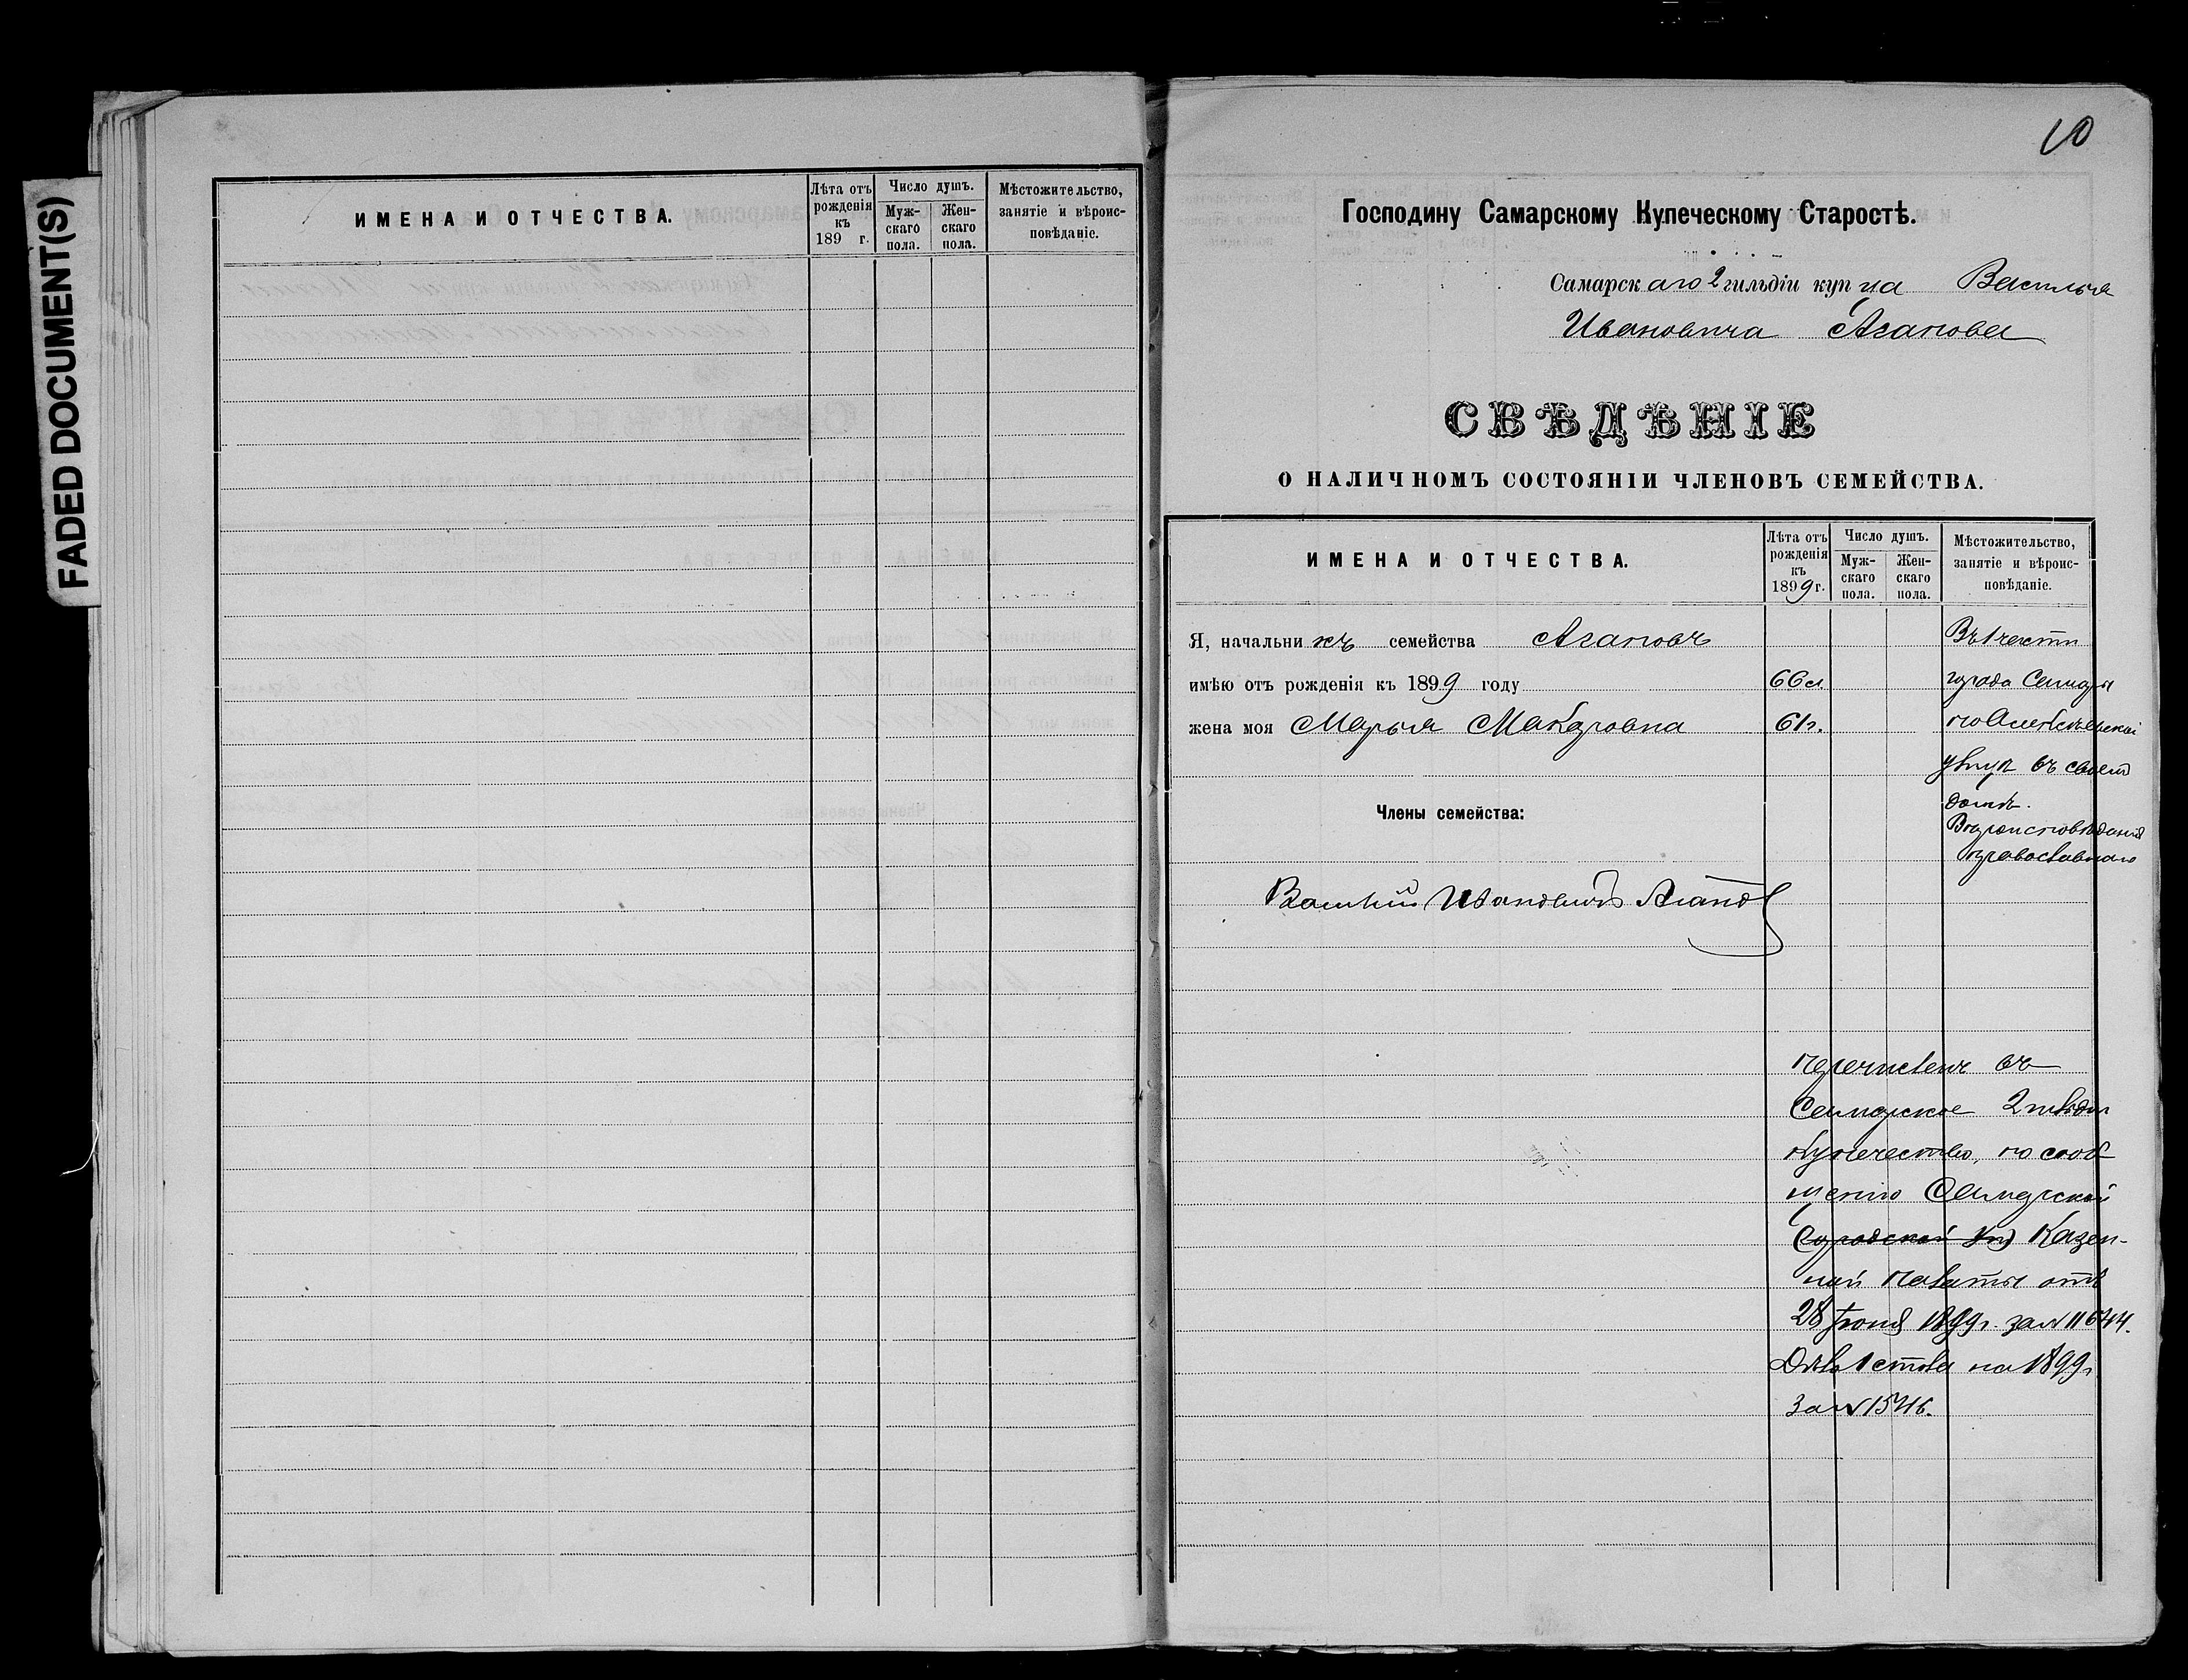 FADED DOCUMENT(S)
ИМЕНА И ОТЧЕСТВА.
Лѣта отъ рожденія къ 189 г.
Число душъ.
Мужскаго пола.
Женскаго пола.
Мѣстожительство, занятіе и вѣроисповѣданіе.
10
Господину Самарскому Купеческому Старостѣ.
Самарскаго 2 гильдіи купца Василья
Ивановича Агапова
СВѢДѢНІЕ
О НАЛИЧНОМЪ СОСТОЯНІИ ЧЛЕНОВЪ СЕМЕЙСТВА.
ИМЕНА И ОТЧЕСТВА.
Лѣта отъ рожденія къ 1899 г.
Число душъ.
Мужскаго пола.
Женскаго пола.
Мѣстожительство, занятіе и вѣроисповѣданіе.
Я, начальникъ семейства Агаповъ
Въ 1 части
имѣю отъ рожденія къ 1899 году 66 л.
города Самары
жена моя Марья Макаровна 61 г.
по Алексѣевской
улицѣ въ своемъ
домѣ.
Члены семейства:
Вѣроисповѣданія
православнаго
Василий Ивановичъ Агапов
перечисленъ въ
Самарское 2 гильдіи
купечество, по сооб
щенію Самарской
Городской Уп Казен-
ной палаты отъ
28 Іюня 1899 г. за № 11644.
на 1899 г.
за № 1546.